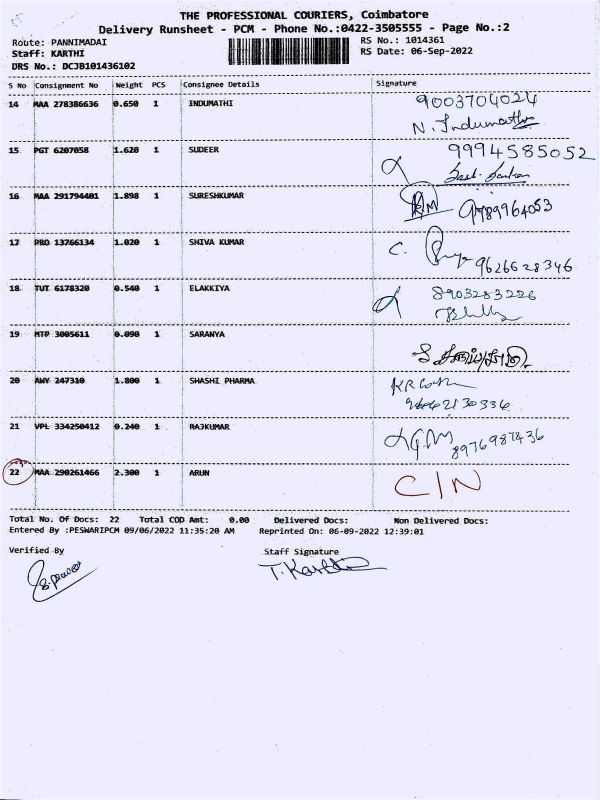 THE PROFESSIONAL COURIERS, Coimbatore
Delivery Runsheet - PCM - Phone No.:0422-3505555 - Page No.:2
Route: PANNIMADAI RS No.: 1014361
Staff: KARTHI RS Date: 06-Sep-2022
DRS No.: DCJB101436102
S No Consignment No Weight PCS Consignee Details Signature
14 MAA 278386636 0.650 1 INDUMATHI 9003704024
N. Indumathi
15 PGT 6207058 1.620 1 SUDEER 9994585052
16 MAA 291794401 1.898 1 SURESHKUMAR 9789964053
17 PRO 13766134 1.020 1 SHIVA KUMAR C.
9626628346
18 TUT 6178320 0.540 1 ELAKKIYA 8903283226
19 MTP 3005611 0.090 1 SARANYA
20 AWY 247310 1.800 1 SHASHI PHARMA
21 VPL 334250412 0.240 1 RAJKUMAR
8976987436
22 MAA 290261466 2.300 1 ARUN C/N
Total No. Of Docs: 22 Total COD Amt: 0.00 Delivered Docs: Non Delivered Docs:
Entered By :PESWARIPCM 09/06/2022 11:35:20 AM Reprinted On: 06-09-2022 12:39:01
Verified By Staff Signature
T. Karthi